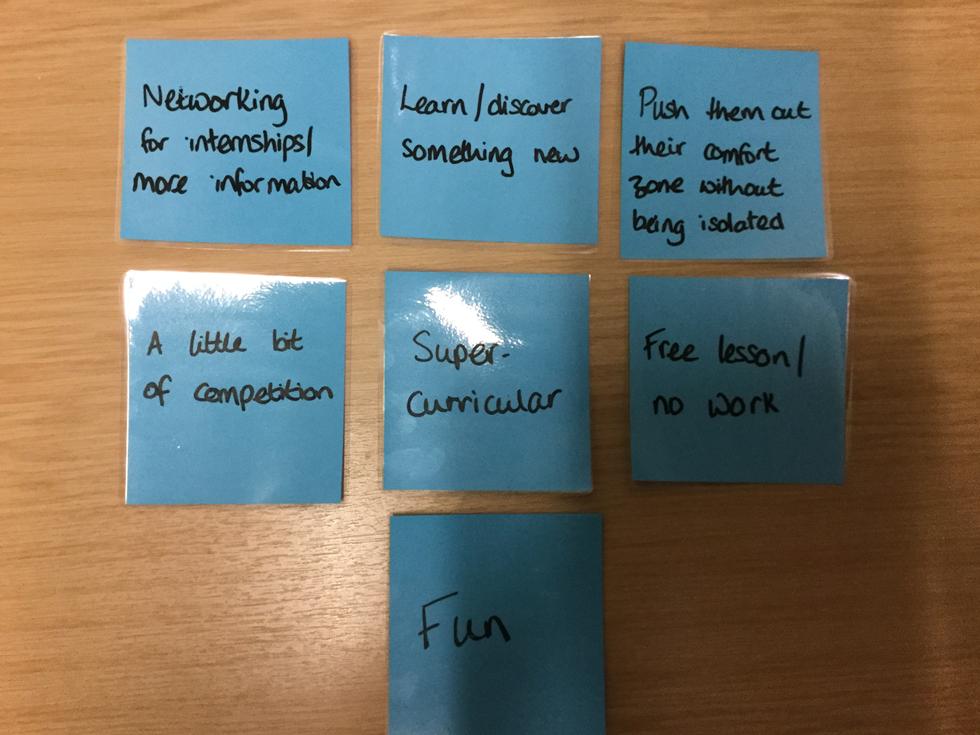 Networking
for internships/
more information
Learn/discover
something new
Push them out
their comfort
zone without
being isolated
A little bit
of competition
Super-
curricular
Free lesson/
no work
Fun